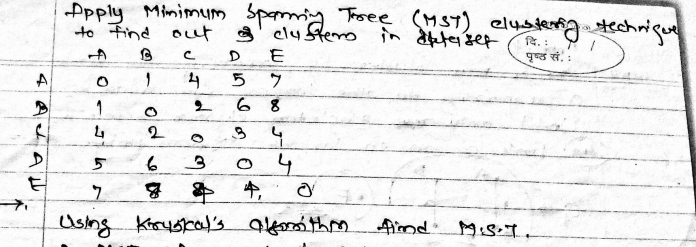 Apply Minimum Spanning Tree (MST) clustering technique
to find out 3 clusters in dataset
दि.: / /
पृष्ठ सं.:
A B C D E
A 0 1 4 5 7
B 1 0 2 6 8
C 4 2 0 3 4
D 5 6 3 0 4
E 7 8 4 4, 0
Using Kruskal's algorithm find M.S.T.